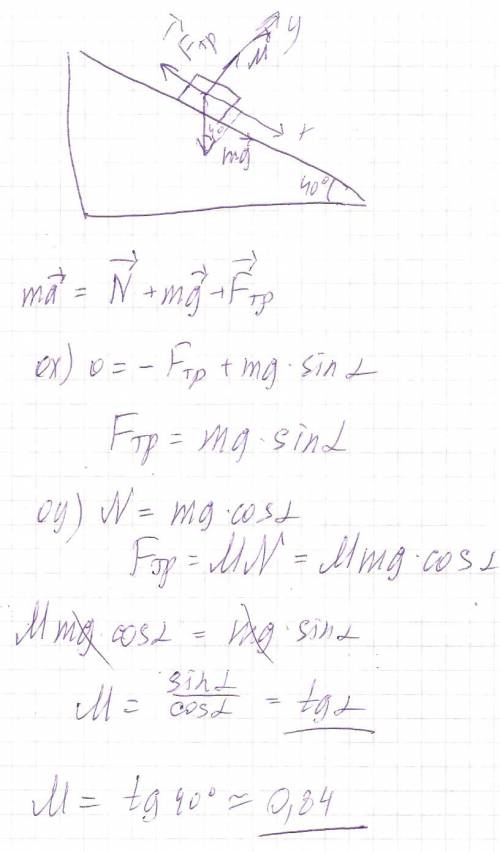 F⃗тр N⃗ y
x
40°
mg⃗
40°
ma⃗ = N⃗ + mg⃗ + F⃗тр
ox) 0 = - Fтр + mg · sinα
Fтр = mg · sinα
oy) N = mg · cosα
Fтр = MN = Mmg · cosα
Mmg cosα = mg · sinα
M = sinα/cosα = tgα
M = tg 40° ≃ 0,84